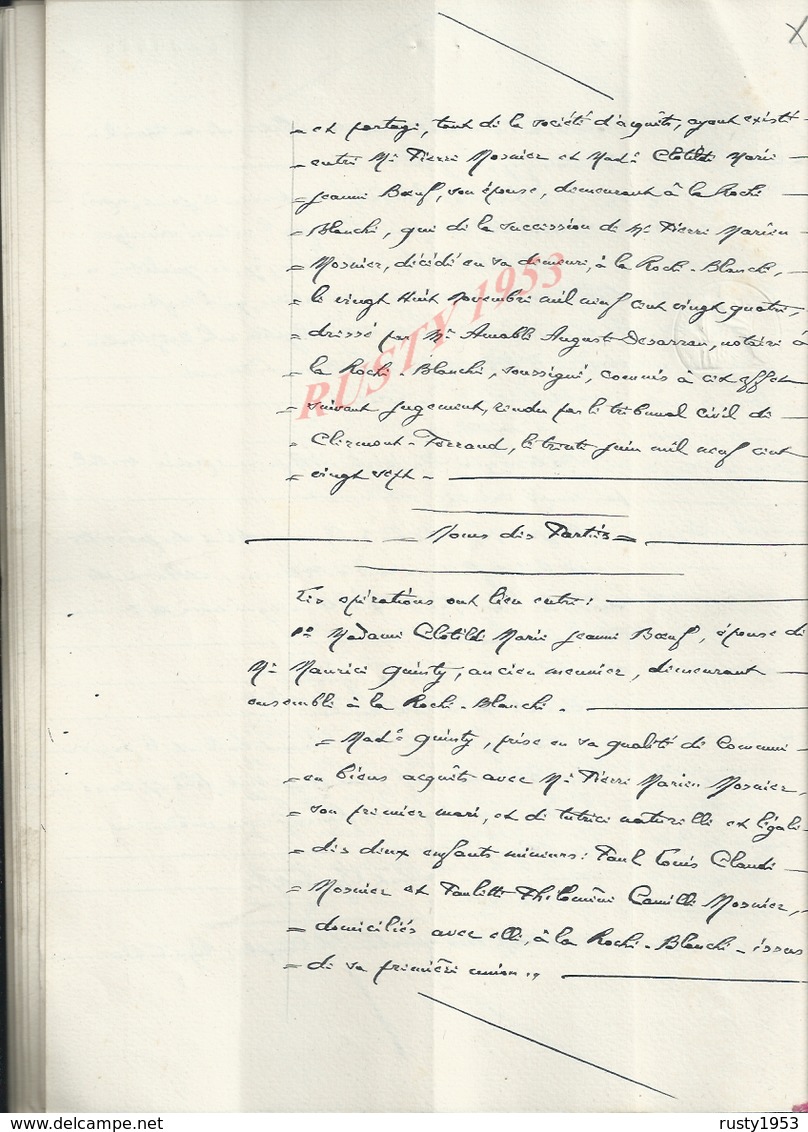 et partage, tant de la société d'acquêts, ayant existé
entre Mr Pierre Mosnier et Made Clotilde Marie
Jeanne Bœuf, son épouse, demeurant à la Roche
Blanche, que de la succession de Mr Pierre Marien
Mosnier, décédé en sa demeure, à la Roche-Blanche,
le vingt huit novembre mil neuf cent vingt quatre,
dressé par Me Amable Auguste Desarran, notaire à
la Roche-Blanche, soussigné, commis à cet effet
suivant jugement, rendu par le tribunal civil de
Clermont-Ferrand, le trente juin mil neuf cent
vingt sept -
RUSTY 1953
Noms des Parties
Les opérations ont lieu entre :
1º Madame Clotilde Marie Jeanne Bœuf, épouse de
Mr Maurice Guinty, ancien meunier, demeurant
ensemble à la Roche-Blanche -
Made Guinty, prise en sa qualité de Commune
en biens acquêts avec Mr Pierre Marien Mosnier,
son premier mari, et de tutrice naturelle et légale
des deux enfants mineurs : Paul Louis Claude
Mosnier et Paulette Philomène Camille Mosnier,
domiciliés avec elle, à la Roche-Blanche - issus
de sa première union.,
delcampe.net
rusty1953